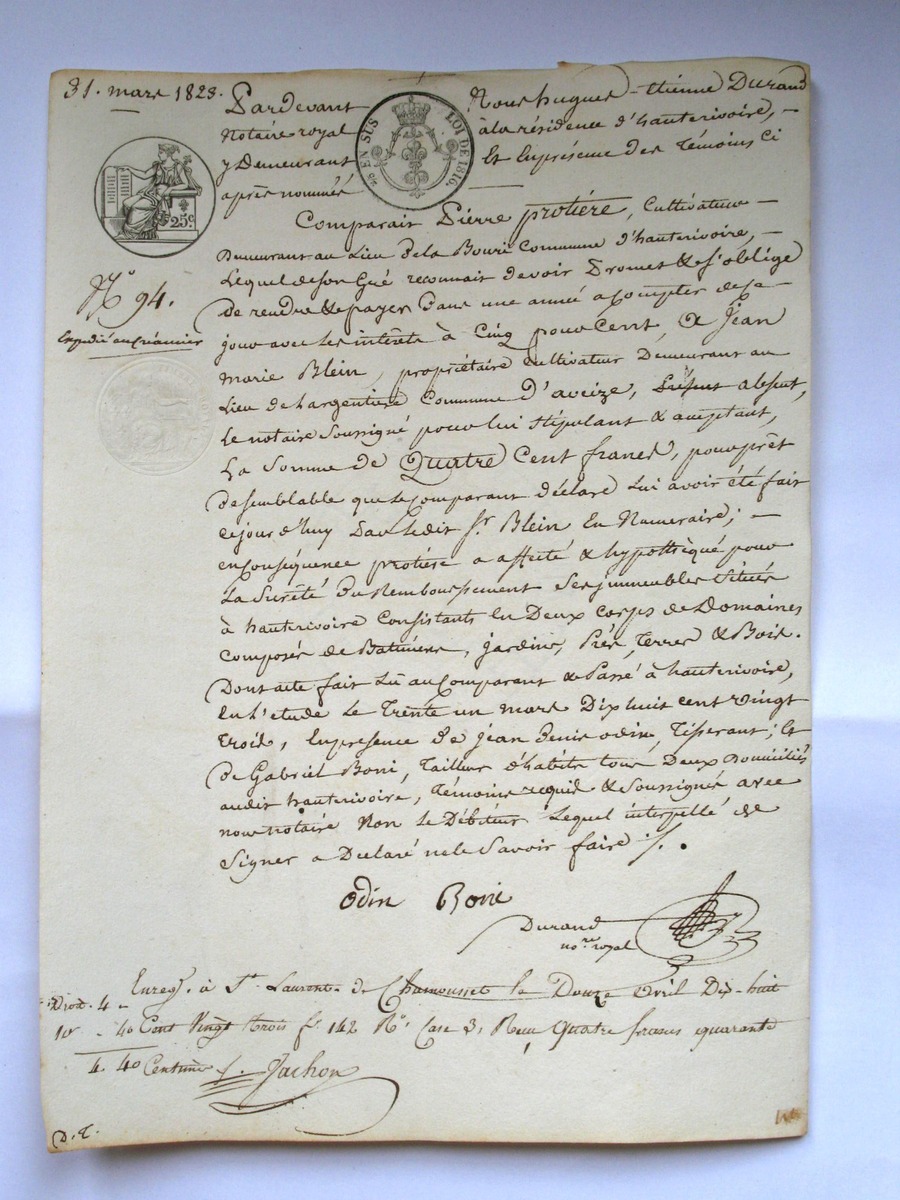 31. mars 1823. Pardevant Nous hugues-étienne Durand
Notaire royal à la résidence d'hauterivoire, –
y Demeurant Et En présence des Témoins ci
après nommés
EN SUS
LOI DE 1816.
25c.
Comparait Pierre protière, Cultivateur –
Demeurant au Lieu de la Bourie Commune d'hauterivoire, –
Lequel de son Gré reconnait devoir Promet & s'oblige
de rendre & payer Dans une année a Compter de ce
jour avec Les intérêts à Cinq pour Cent, à Jean
Marie Blein, propriétaire Cultivateur Demeurant au
Lieu de Largentiere Commune D'aveize, absent,
Le notaire Soussigné pour lui stipulant & acceptant,
La Somme de Quatre Cent francs, pour prêt
de semblable que le comparant déclare Lui avoir été fait
cejourd'huy Par Ledit Sr. Blein En Numeraire; –
en Conséquence protière a affecté & hypothèqué pour
La Sureté Du Remboursement Ses immeubles Situés
à hauterivoire Consistants En Deux Corps de Domaines
composés de Batimens, jardins, Prés, Terres & Bois.
Dont acte fait Lu au Comparant & Passé à hauterivoire,
En l'etude Le Trente un mars Dix huit cent vingt
trois, En presence de jean Denis odin, Tisserant; Et
de Gabriel Boni, Tailleur d'habits tous Deux Domiciliés
audit hauterivoire, Témoins requis & Soussignés avec
nous notaire Non Le Débiteur Lequel interpellé de
Signer a Declaré ne le Savoir faire ./.
N° 94.
Expédié au Créancier
Odin Boni
Durand
nore. royal
Enregé. à St. Laurent de Chamousset le Douze Avril Dix-huit
Droit. 4 –
10e – 40 Cent Vingt trois fo. 142 Ro. Case 3. Reçu Quatre francs quarante
4. 40 Centimes ./. Jachon
D. T.